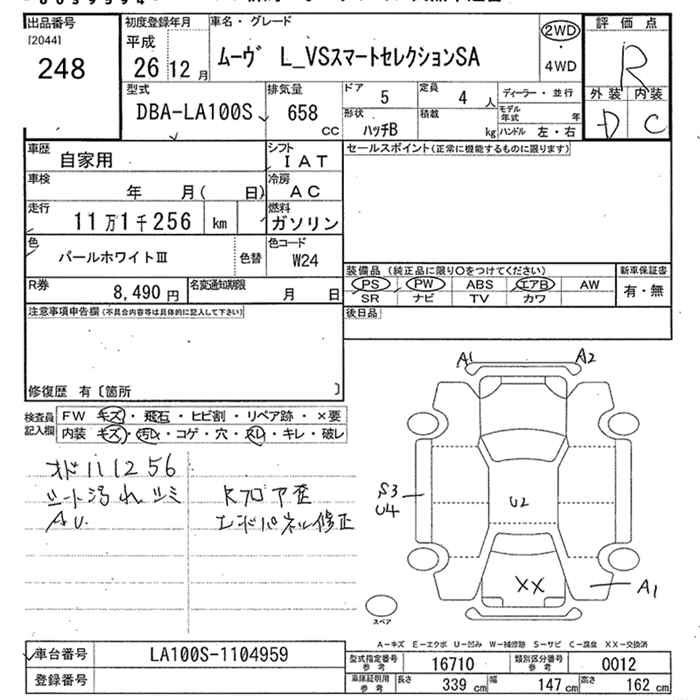 出品番号
[2044]
248
初度登録年月
平成
26 12 月
車名・グレード
ムーヴ L_VSスマートセレクションSA
2WD
・
4WD
評価点
R
外装 内装
D C
型式
DBA-LA100S
排気量
658
CC
ドア 5
定員 4 人
ディーラー・並行
形状
ハッチB
積載
kg
モデル年式 年
ハンドル 左・右
車歴
自家用
シフト
I A T
セールスポイント(正常に機能するものに限ります)
車検
年 月( 日)
冷房
A C
走行
11万1千256 km
燃料
ガソリン
色
パールホワイトⅢ
色替
色コード
W24
装備品 (純正品に限り○をつけてください)
新車保証書
PS PW ABS エアB AW
有・無
SR ナビ TV カワ
R券
8,490 円
名変通知期限
月 日
後日品
注意事項申告欄(不具合内容等は具体的に記入して下さい)
修復歴 有〔箇所 〕
検査員
記入欄
FW キズ・飛石・ヒビ割・リペア跡・×要
内装 キズ・汚れ・コゲ・穴・スレ・キレ・破レ
オド111256
シート汚れ シミ
AU.
Rフロア歪
エンドパネル修正
A1
A2
S3
U4
U2
XX
A1
スペア
A-キズ E-エクボ U-凹み W-補修跡 S-サビ C-腐食 XX-交換済
車台番号
LA100S-1104959
登録番号
型式指定番号
参考
16710
類別区分番号
参考
0012
車庫証明用
参考
長さ 339 cm
幅 147 cm
高さ 162 cm